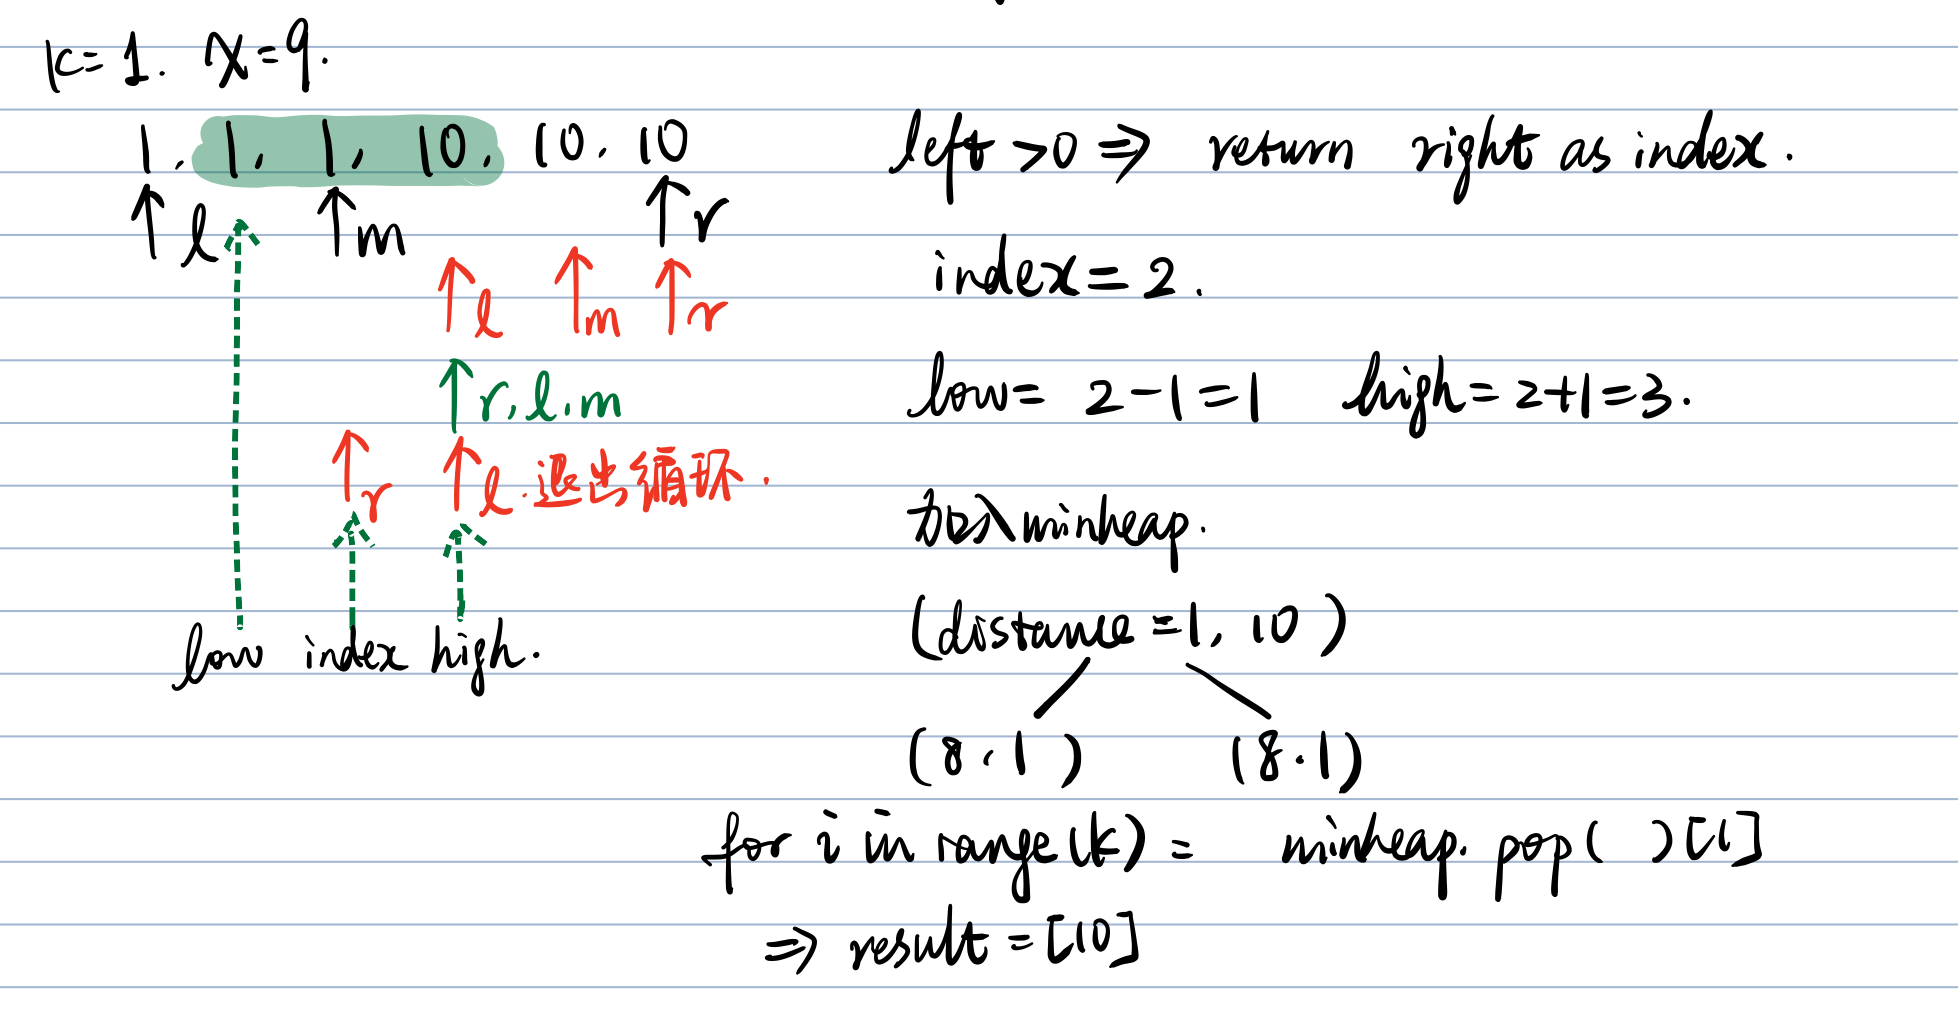 k=1. x=9.
1. 1, 1, 10, 10. 10
l m r
l m r
r, l, m
r l. 退出循环.
low index high.
left >0 ⇒ return right as index.
index = 2.
low = 2-1=1 high = 2+1=3.
加入minheap.
(distance =1, 10)
(8, 1) (8.1)
for i in range(k) = minheap. pop( )[1]
⇒ result = [10]